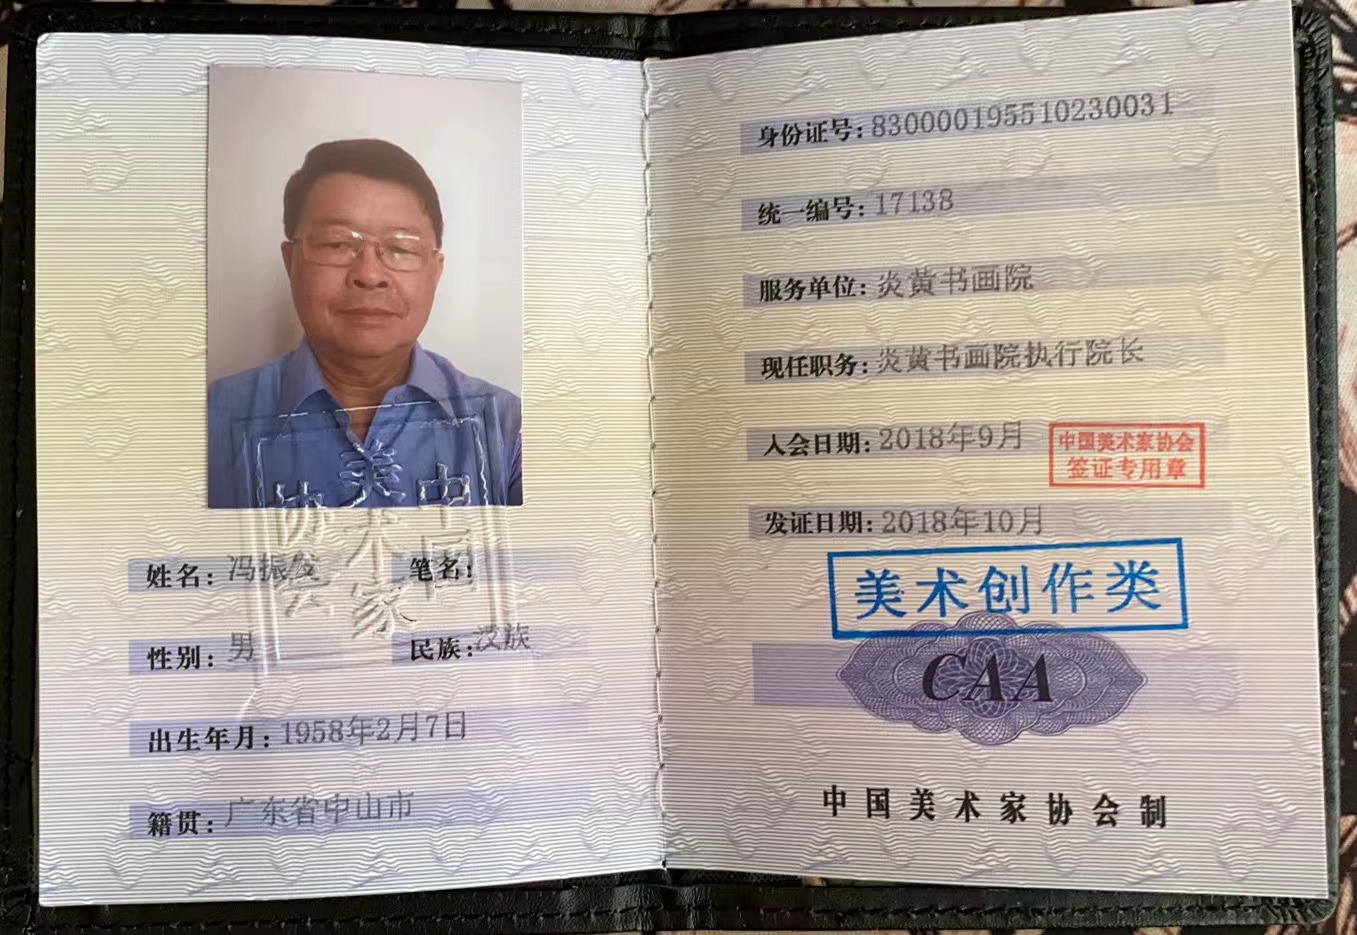 中国
美术家
协会
姓名：冯振发 笔名：
性别：男 民族：汉族
出生年月：1958年2月7日
籍贯：广东省中山市
身份证号：830000195510230031
统一编号：17138
服务单位：炎黄书画院
现任职务：炎黄书画院执行院长
入会日期：2018年9月
中国美术家协会
签证专用章
发证日期：2018年10月
美术创作类
CAA
中国美术家协会制